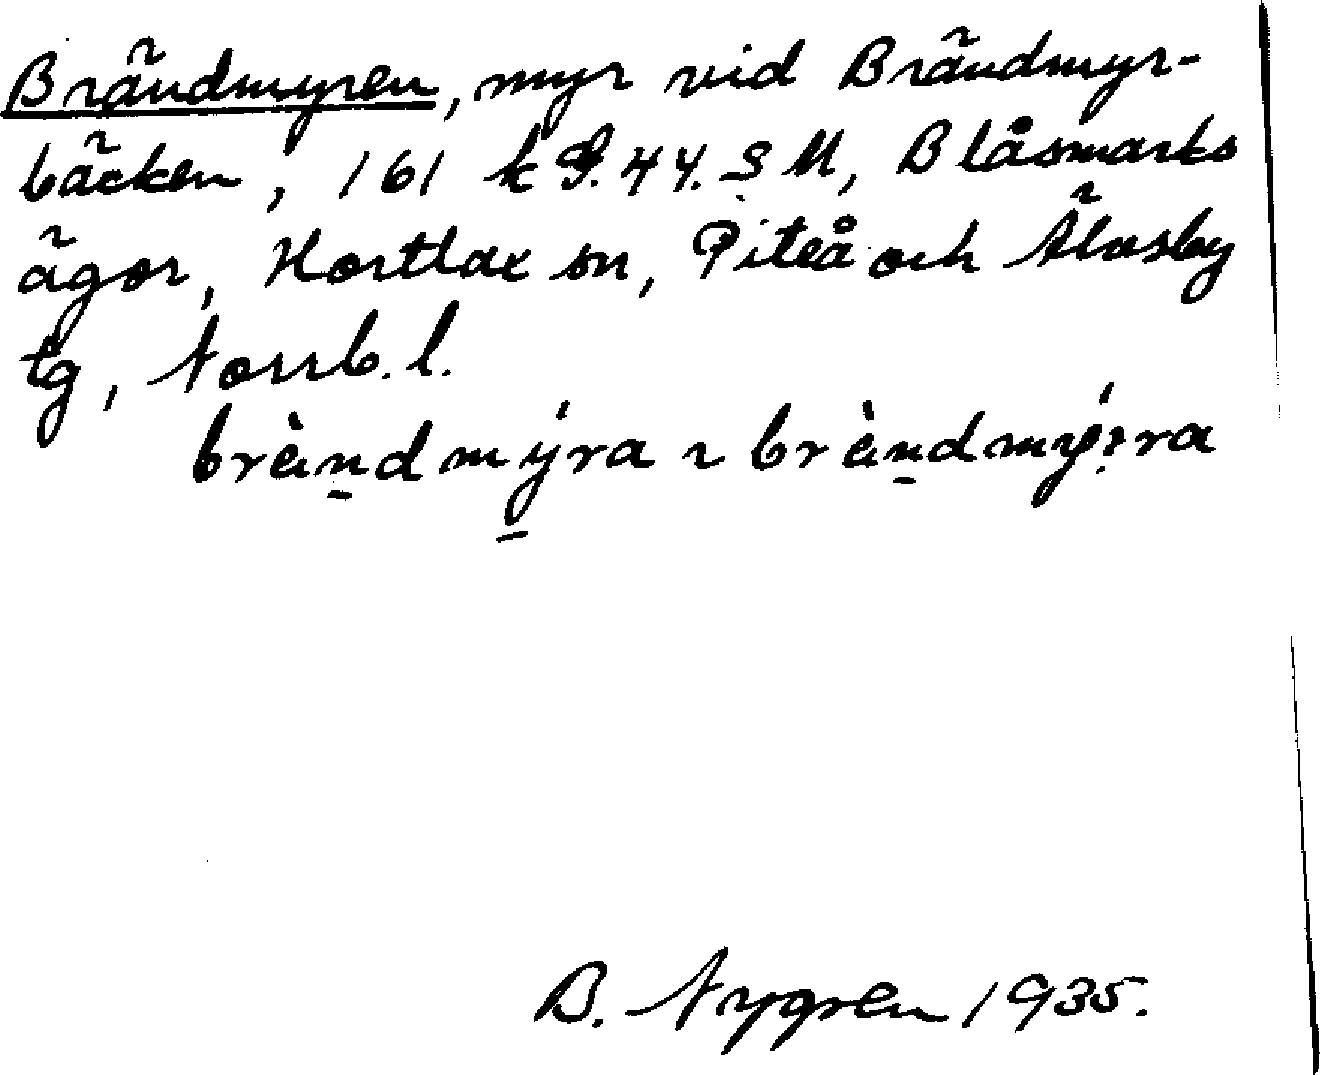 Brändmyren, myr vid Brändmyr-
bäcken, 161 k S.44.S M, Blåsmarks
ägor, Hortlax sn, Piteå och Älvsby
tg, Norrb. l.
brènd mýra ~ brèndmýrra
B. Nygren 1935.